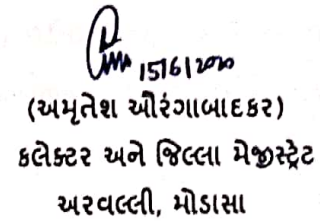 15/6/2020
(અમૃતેશ ઔરંગાબાદકર)
કલેક્ટર અને જિલ્લા મેજીસ્ટ્રેટ
અરવલ્લી, મોડાસા